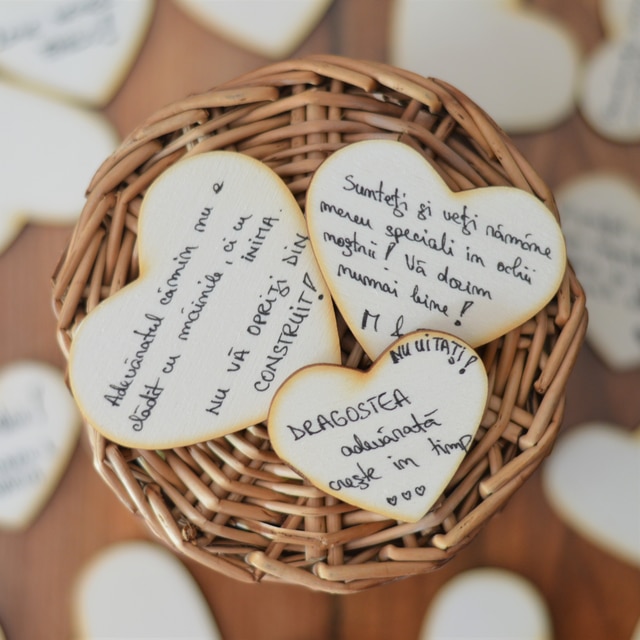 Adevăratul cămin nu e
clădit cu mâinile, ci cu
INIMA.
NU VĂ OPRIȚI DIN
CONSTRUIT!
Sunteți și veți rămâne
mereu speciali in ochii
noștrii! Vă dorim
numai bine!
NU UITAȚI!
DRAGOSTEA
adevărată
crește in timp